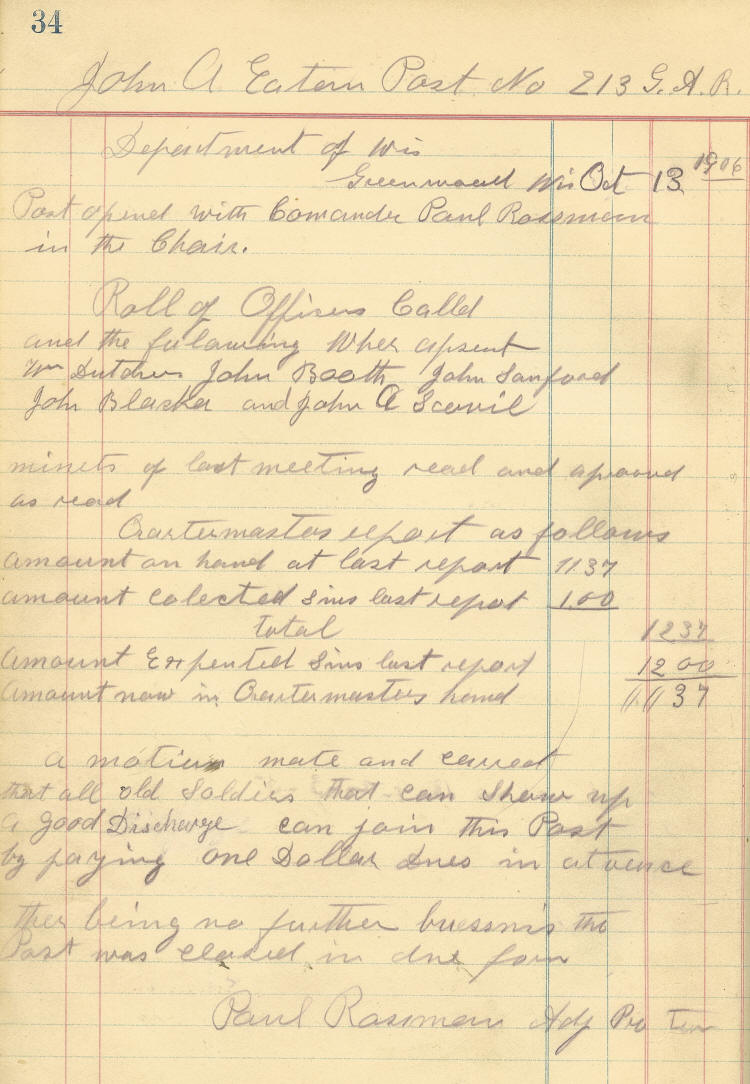 34
John A Eaton Post No 213 G. A. R.
Department of Wis
Greenwood Wis Oct 13 1906
Post opend with Comander Paul Rossman
in the Chair.
Roll of Officers Calld
and the folawing Wher apsent
Wm Dutcher John Booth John Sanford
John Blaska and John A Scovil
minets of last meeting read and aproved
as read
Qartermasters report as follows
amount on hand at last report 11.37
amount colected sins last repot 1.00
total 12 37
Amount Expented sins last report 12 00
Amount now in Qartermasters hand 37
a motiun mate and carred
that all old Soldiers that can show up
a good Discharge can join this Post
by paying one Dollar dues in atvance
ther being no further buessnis the
Post was closed in due form
Paul Rossman Adj Pro Tem